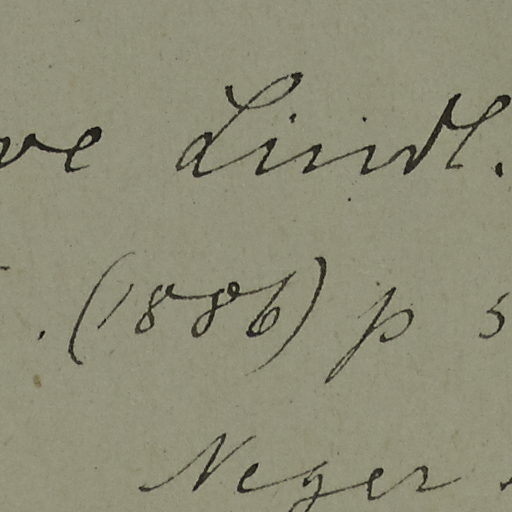 ve Lindl.
. (1886) p 5
Neger